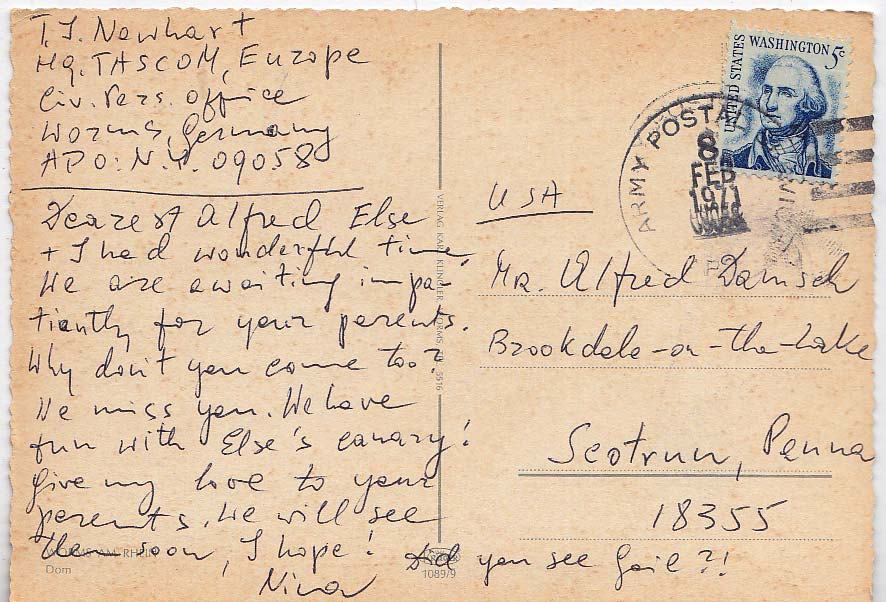 T.J. Newhart
Hq. TASCOM, Europe
Civ. Pers. office
Worms, Germany
APO. N.Y. 09058
Dearest Alfred Else
+ I had wonderful time,
We are awaiting impa-
tiently for your parents.
Why don't you come too?
We miss you. We have
fun with Else's canary!
Give my love to your
parents. We will see
them soon, I hope!
Nina
Did you see Gail?!
WORMS AM RHEIN
Dom
1089/9
VERLAG KARL KLINGLER, WORMS, 5516
UNITED STATES
WASHINGTON 5c
ARMY POSTAL
8
FEB
1971
USA
Mr. Alfred Damsch
Brookdale-on-the-Lake
Scotrun, Penna
18355